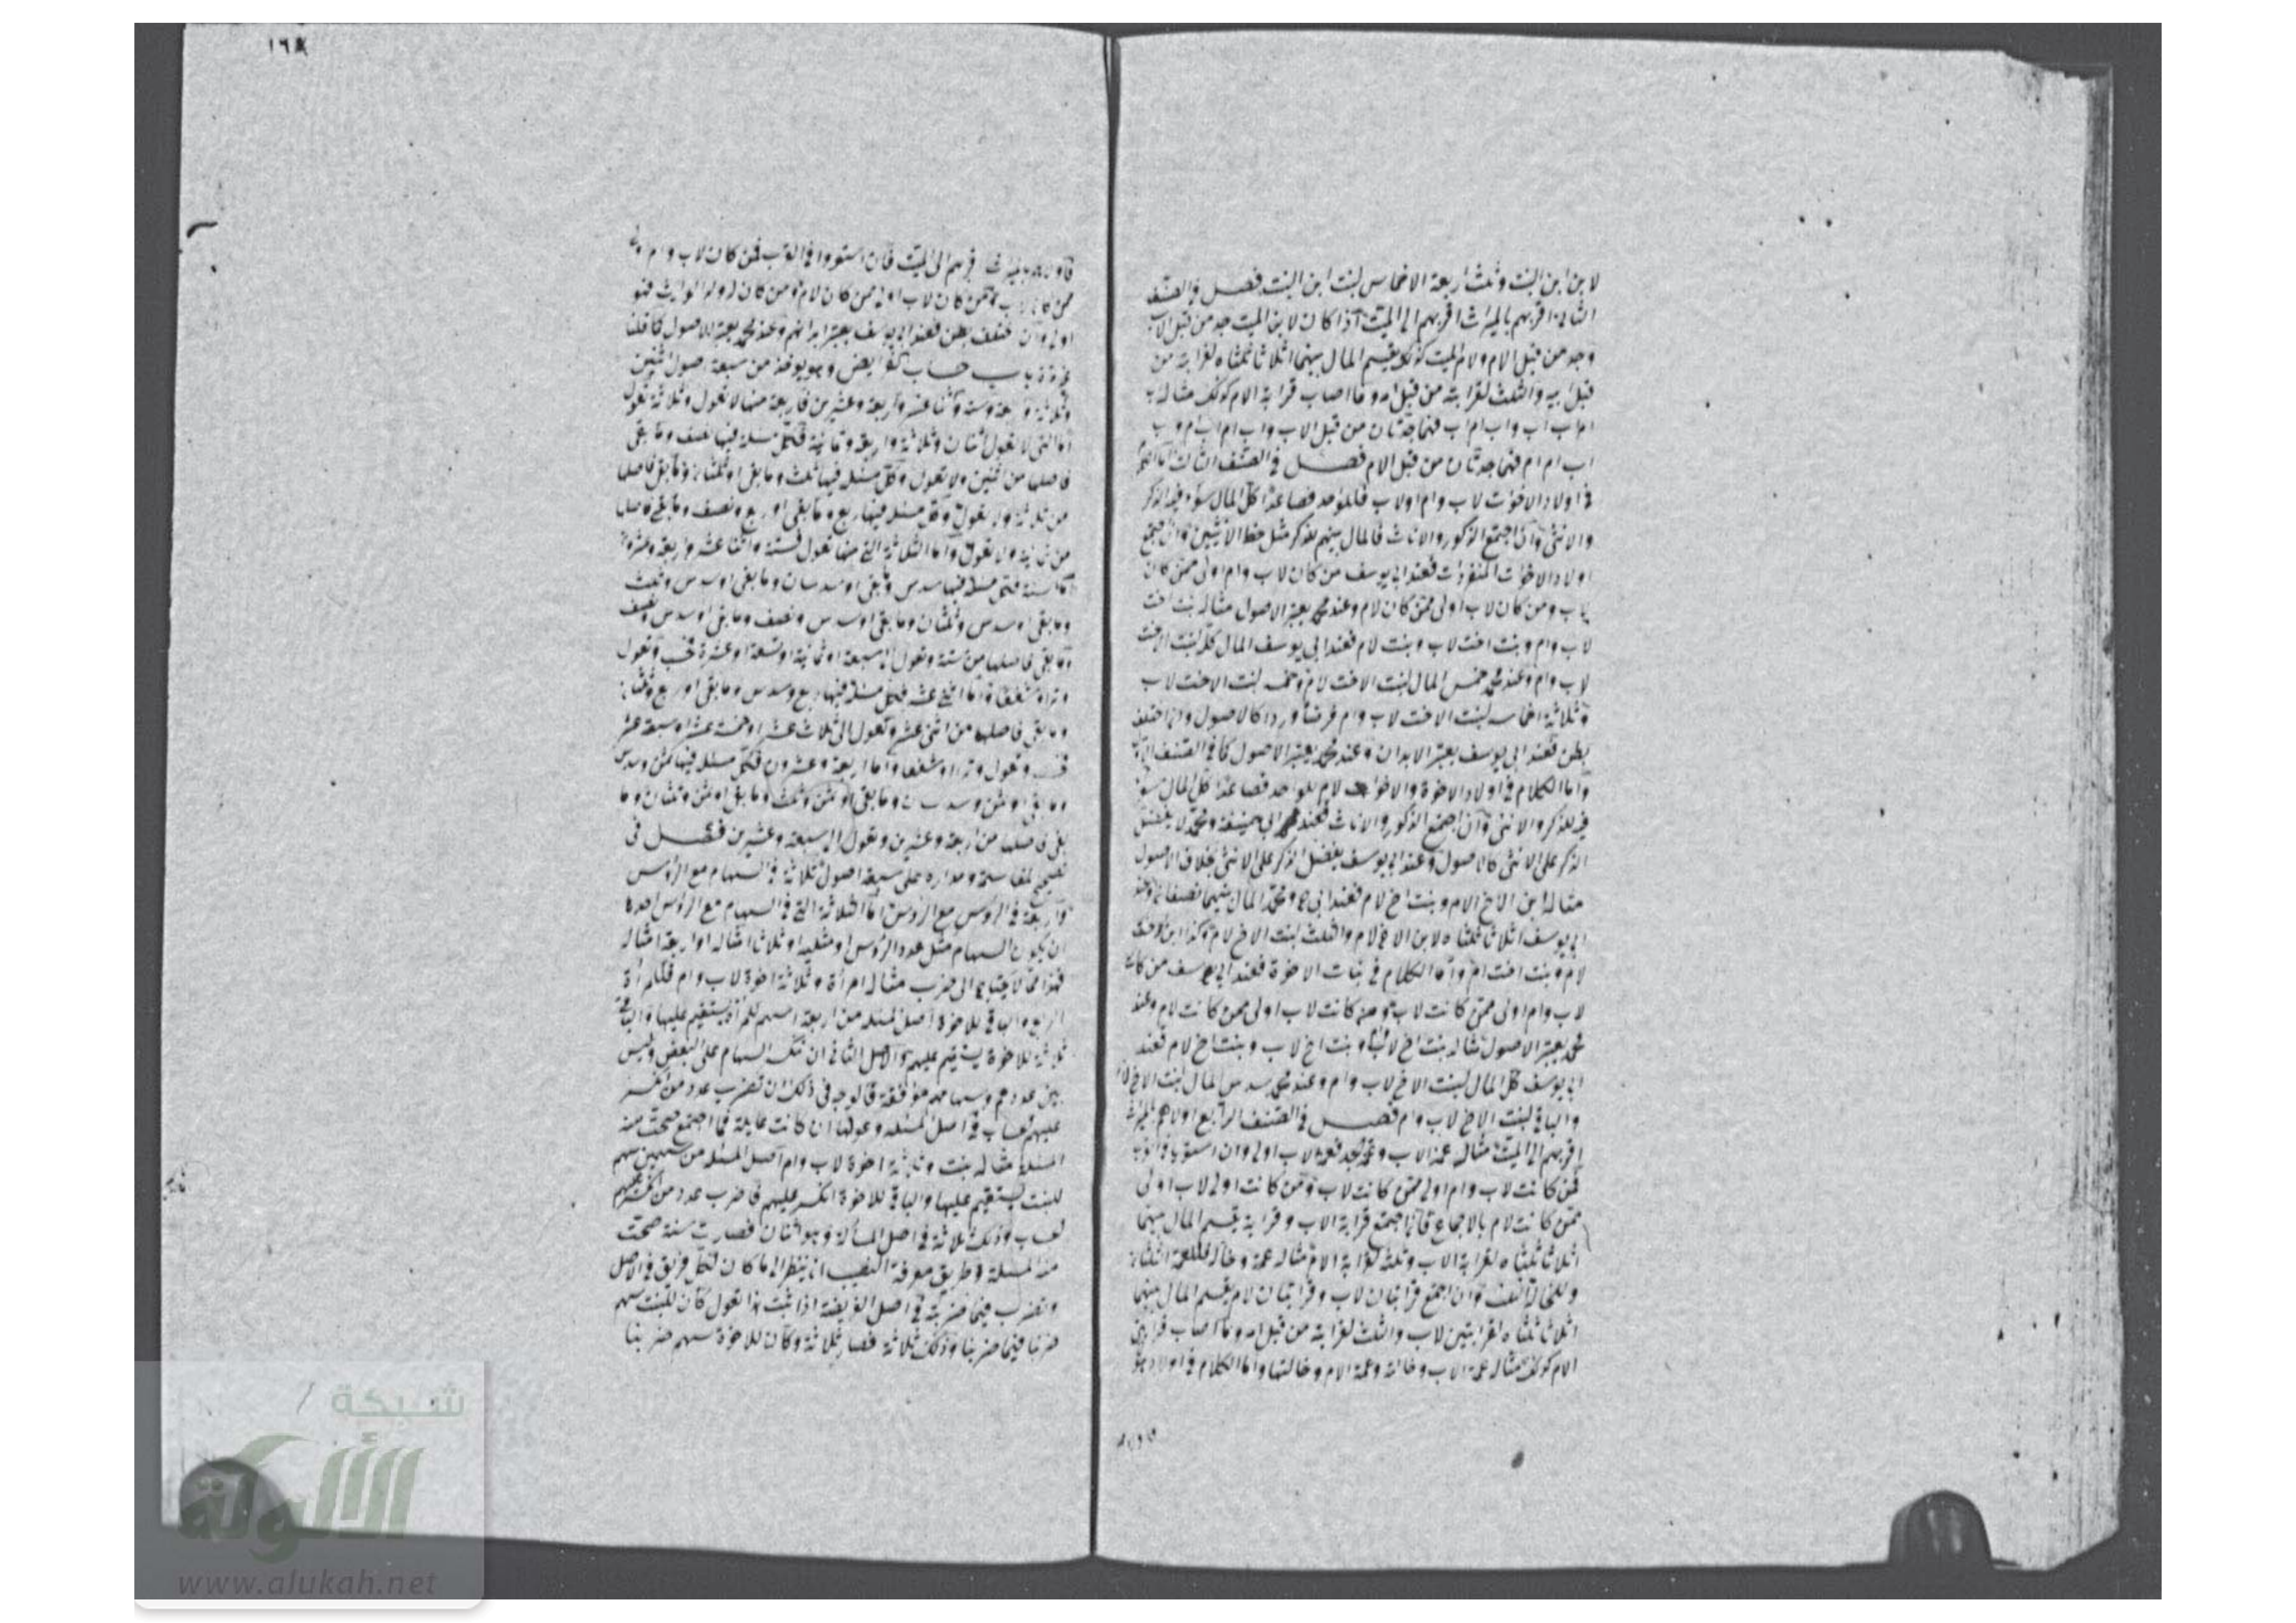 لابن ابن البنت وثلث اربعة الاخماس لبنت ابن البنت فصل في الصنف
الثاني اقربهم بالميراث اقربهم الى الميت اذا كان لابن الميت جد من قبل الاب
وجد من قبل الام ولام الميت كذلك يقسم المال بينهما اثلاثا ثلثاه لقرابته من
قبل ابيه والثلث لقرابته من قبل امه وما اصاب قرابة الام كذلك مثاله
اب اب واب ام اب فهما جدتان من قبل الاب واب ام
اب ام ام فهما جدتان من قبل الام فصل في الصنف الثالث
في اولاد الاخوات لاب وام او لاب فللواحد فصاعدا كل المال سواء فيه الذكر
والانثى وان اجتمع الذكور والاناث فالمال بينهم للذكر مثل حظ الانثيين وان اجتمع
اولاد الاخوات المتفرقات فعند ابي يوسف من كان لاب وام اولى ممن كان
لاب ومن كان لاب اولى ممن كان لام وعند محمد يعتبر الاصول مثاله بنت اخت
لاب وام وبنت اخت لاب وبنت لام فعند ابي يوسف المال كله لبنت الاخت
لاب وام وعند محمد خمس المال لبنت الاخت لام وخمسه لبنت الاخت لاب
وثلاثة اخماسه لبنت الاخت لاب وام فرضا وردا كالاصول وان اختلف
بطن فعند ابي يوسف يعتبر الابدان وعند محمد يعتبر الاصول كما في الصنف
واما الكلام في اولاد الاخوة والاخوات لام للواحد فصاعدا كل المال
فيه للذكر والانثى وان اجتمع الذكور والاناث فعند ابي حنيفة ومحمد لا يفضل
الذكر على الانثى كالاصول وعند ابي يوسف يفضل الذكر على الانثى بخلاف الاصول
مثاله ابن الاخ لام وبنت اخ لام فعند ابي ح ومحمد المال بينهما نصفان وعند
ابي يوسف اثلاثا ثلثاه لابن الاخ لام والثلث لبنت الاخ لام وكذا ابن
لام وبنت اخت لام واما الكلام في بنات الاخوة فعند ابي يوسف من كانت
لاب وام اولى ممن كانت لاب ومن كانت لاب اولى ممن كانت لام وعند
محمد يعتبر الاصول مثاله بنت اخ لاب وام وبنت اخ لاب وبنت اخ لام فعند
ابي يوسف كل المال لبنت الاخ لاب وام وعند محمد سدس المال لبنت الاخ لام
والباقي لبنت الاخ لاب وام فصل في الصنف الرابع اولاهم بالميراث
اقربهم الى الميت مثاله عمة الاب وعمة الجد فعمة الاب اولى وان استويا في القرب
فمن كانت لاب وام اولى ممن كانت لاب ومن كانت اولى لاب اولى
ممن كانت لام بالاجماع فاذا اجتمع قرابة الاب وقرابة يقسم المال بينهما
اثلاثا ثلثاه لقرابة الاب وثلثه لقرابة الام مثاله عمة وخالة فللعمة الثلثان
وللخالة الثلث وان اجتمع قرابتان لاب وقرابتان لام يقسم المال بينهما
اثلاثا ثلثاه لقرابتين لاب والثلث لقرابته من قبل امه وما اصاب قرابتي
الام كذلك مثاله عمة الاب وخالة وعمة الام وخالتها واما الكلام في اولاد
١٦٨
بالميراث اقربهم الى الميت فان استووا في القرب فمن كان لاب وام
ممن كان لاب ومن كان لاب اولى ممن كان لام ومن كان لولد الوارث فهو
اولى وان اختلف بطن فعند ابي يوسف يعتبر ابدانهم وعند محمد يعتبر الاصول كما قلنا
باب حساب الفرايض وهو يوخذ من سبعة اصول اثنين
وثلاثة واربعة وستة واثنا عشر واربعة وعشرين فاربعة منها لا تعول وثلاثة تعول
اما التي لا تعول اثنان وثلاثة واربعة وثمانية فكل مسئلة فيها نصف وما بقي
فاصلها من اثنين ولا تعول وكل مسئلة فيها ثلث وما بقي او ثلثان وما بقي فاصلها
من ثلاثة ولا تعول وكل مسئلة فيها ربع وما بقي او ربع ونصف وما بقي فاصلها
من ثمانية ولا تعول واما الثلاثة التي منها تعول فستة واثنا عشر واربعة وعشرون
اما ستة فكل مسئلة فيها سدس وما بقي او سدسان وما بقي او سدس وثلث
وما بقي او سدس وثلثان وما بقي او سدس ونصف وما بقي او سدس ونصف
وما بقي فاصلها من ستة وتعول الى سبعة او ثمانية او تسعة او عشرة فحسب وتعول
وترا وشفعا واما اثني عشر فكل مسئلة فيها ربع وسدس وما بقي او ربع وثلثان
وما بقي فاصلها من اثني عشر وتعول الى ثلاث عشر او خمسة عشر او سبعة عشر
وتعول وترا وشفعا واما اربعة وعشرون فكل مسئلة فيها ثمن وسدس
وما بقي او ثمن وسدسان وما بقي او ثمن وثلث وما بقي او ثمن وثلثان وما
بقي فاصلها من اربعة وعشرين وتعول الى سبعة وعشرين فصل في
تصحيح المقاسمة ومداره على سبعة اصول ثلاثة في السهام مع الرؤس
واربعة في الرؤس مع الرؤس اما الثلاثة التي في السهام مع الرؤس احدها
ان يكون السهام مثل عدد الرؤس او مثليه او ثلاثة امثاله او اربعة امثاله
فهذا مما لا يحتاج الى ضرب مثاله امرأة وثلاثة اخوة لاب وام فللمرأة
الربع والباقي للاخوة اصل المسئلة من اربعة سهم للمرأة يستقيم عليها والباقي
ثلاثة للاخوة يستقيم عليهم والاصل الثاني ان تنكسر السهام على البعض وليس
بين عددهم وسهامهم موافقة فالوجه في ذلك ان تضرب عدد من انكسر
عليهم الحساب في اصل المسئلة وعولها ان كانت عايلة فما اجتمع صحت منه
المسئلة مثاله بنت وثلاثة اخوة لاب وام اصل المسئلة من سهمين سهم
للبنت يستقيم عليها والباقي للاخوة انكسر عليهم فاضرب عدد من انكسر عليهم
الحساب وذلك ثلاثة في اصل المسألة وهو اثنان فصارت ستة صحت
منه المسئلة وطريق معرفة النصيب ان ينظر الى ما كان لكل فريق في الاصل
وتضرب فيما ضربته في اصل الفريضة اذا ثبت هذا تقول كان للبنت سهم
ضربنا فيما ضربنا وذلك ثلاثة فصار ثلاثة وكان للاخوة سهم ضربنا
شبكة
الألوكة
www.alukah.net